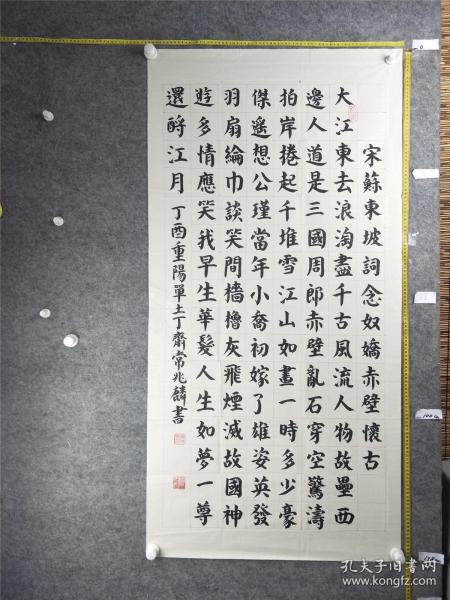 宋蘇東坡詞念奴嬌赤壁懷古
大江東去浪淘盡千古風流人物故壘西
邊人道是三國周郎赤壁亂石穿空驚濤
拍岸捲起千堆雪江山如畫一時多少豪
傑遥想公瑾當年小喬初嫁了雄姿英發
羽扇綸巾談笑間墻櫓灰飛煙滅故國神
遊多情應笑我早生華髮人生如夢一尊
還酹江月
丁酉重陽單土丁齋常兆麟書
孔夫子旧书网
www.kongfz.com